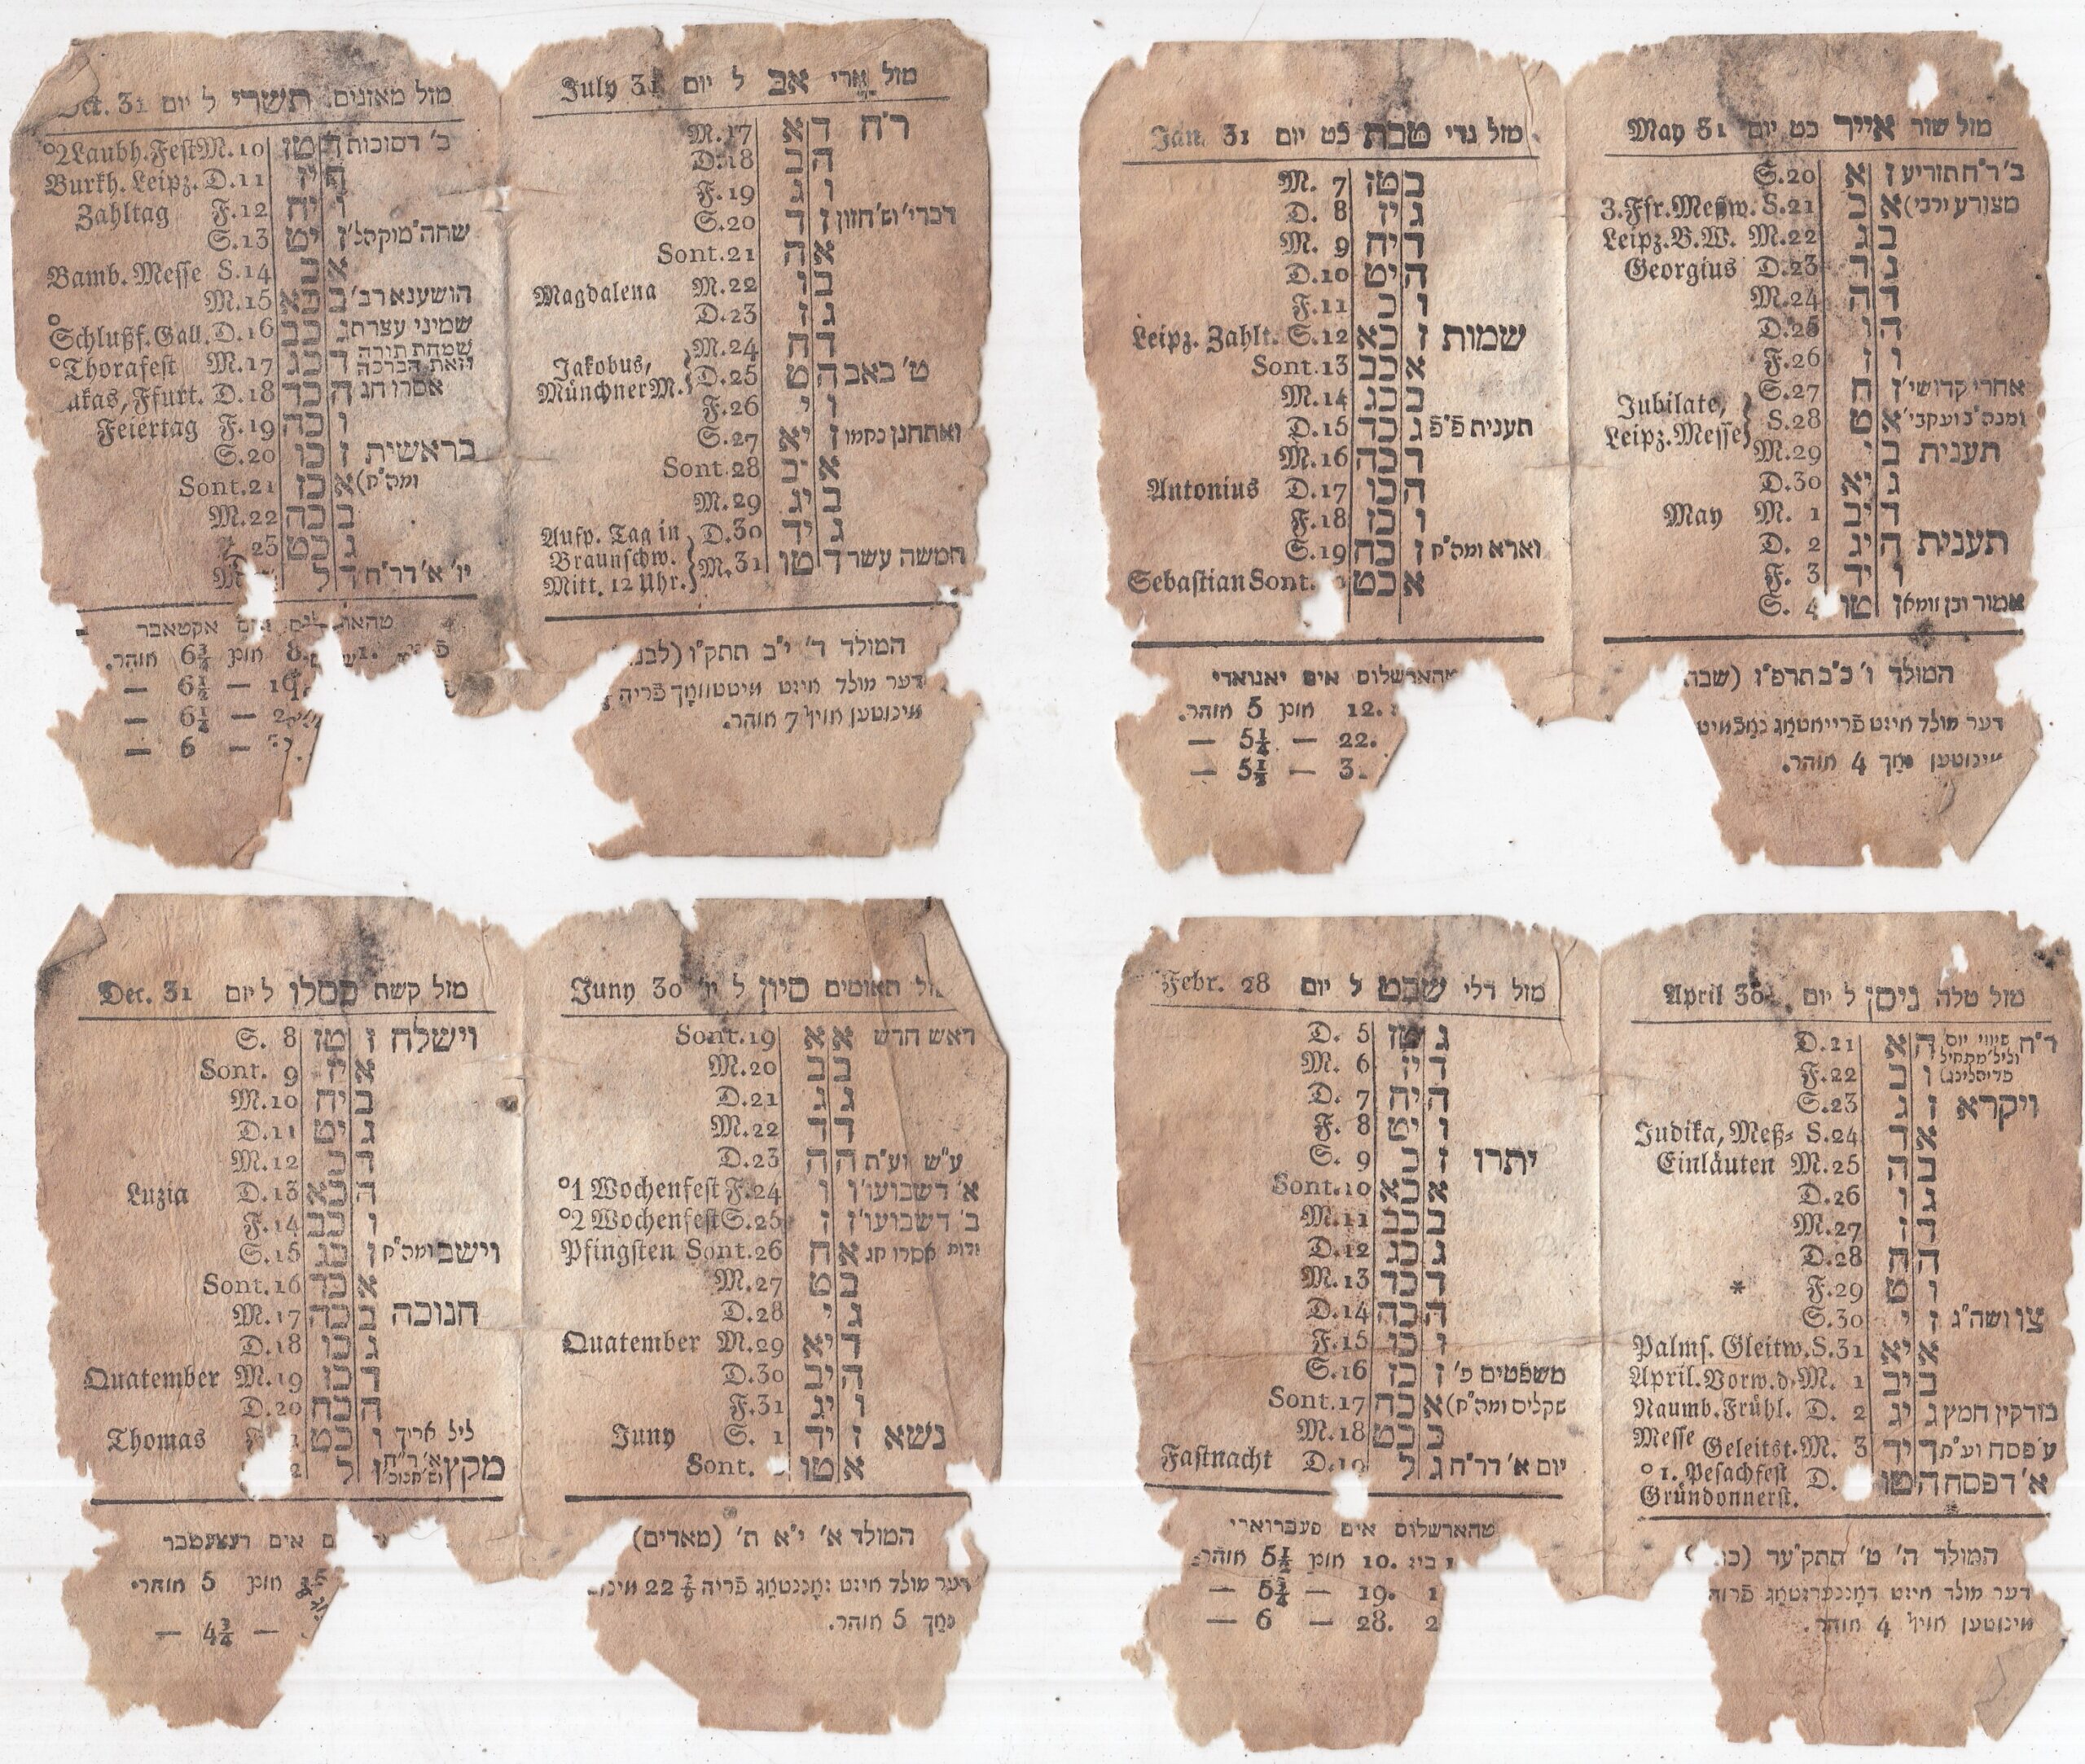 Oct. 31 מזל מאזנים תשרי ל יום
°2 Laubh. Fest M. 10 טז ב׳ דסוכות
Burkh. Leipz. D. 11 יז ה
Zahltag F. 12 יח ו
S. 13 יט ז
Bamb. Messe S. 14 כ א
M. 15 כא ב הושענא רב׳
°Schlußf. Gall. D. 16 כב ג שמיני עצרת
°Thorafest M. 17 כג ד שמחת תורה וזאת הברכה
Ffurt. D. 18 כד ה אסרו חג
Feiertag F. 19 כה ו
S. 20 כו ז בראשית
Sont. 21 כז א (ומה״ח
M. 22 כח ב
23 כט ג
M. ל ד יו׳ א׳ דר״ח
אקטאבר
8. פון 6¾ אוהר.
— 6½ —
— 6¼ —
— 6 —
July 31 מזל ארי אב ל יום
M. 17 א ד ר״ח
D. 18 ב ה
F. 19 ג ו
S. 20 ד ז דברי׳ וש׳ חזון
Sont. 21 ה א
Magdalena M. 22 ו ב
D. 23 ז ג
M. 24 ח ד
Jakobus, Münchner M. } D. 25 ט ה ט׳ באב
F. 26 י ו
S. 27 יא ז ואתחנן נחמו
Sont. 28 יב א
M. 29 יג ב
Aufp. Tag in D. 30 יד ג
Braunschw. Mitt. 12 Uhr. } M. 31 טו ד חמשה עשר
המולד ד׳ י״ב תתק״ו
דער מולד איזט מיטטוואך פריה
מינוטען אויף 7 אוהר.
Jan. 31 מזל גדי טבת כט יום
M. 7 טז ב
D. 8 יז ג
M. 9 יח ד
D. 10 יט ה
F. 11 כ ו
Leipz. Zahlt. S. 12 כא ז שמות
Sont. 13 כב א
M. 14 כג ב
D. 15 כד ג תענית פ״פ
M. 16 כה ד
Antonius D. 17 כו ה
F. 18 כז ו
S. 19 כח ז וארא ומה״ח
Sebastian Sont. כט א
טהארשלוס אים יאנוארי
12. פון 5 אוהר.
22. — 5¼ —
3 — 5½ —
May 31 מזל שור אייר כט יום
S. 20 א ז ב׳ ר״ח תזריע
3. Ffr. Meßw. S. 21 ב א (מצורע
Leipz. B. W. M. 22 ג ב
Georgius D. 23 ד ג
M. 24 ה ד
D. 25 ו ה
F. 26 ז ו
S. 27 ח ז אחרי קדושי׳
Jubilate, Leipz. Messe } S. 28 ט א
M. 29 י ב תענית
D. 30 יא ג
May M. 1 יב ד
D. 2 יג ה תענית
F. 3 יד ו
S. 4 טו ז אמור
המולד ו׳ כ״ב תרפ״ו
דער מולד איזט פרייטאג נאכמיט
מינוטען נאך 4 אוהר.
Dec. 31 מזל קשת כסלו ל יום
S. 8 טז ז וישלח
Sont. 9 יז א
M. 10 יח ב
D. 11 יט ג
M. 12 כ ד
Luzia D. 13 כא ה
F. 14 כב ו
S. 15 כג ז וישב ומה״ח
Sont. 16 כד א
M. 17 כה ב חנוכה
D. 18 כו ג
Quatember M. 19 כז ד
D. 20 כח ה
Thomas כט ו ליל ארוך
2 ל ז מקץ
אים דעצעמבר
פון 5 אוהר.
— 4¾ —
Juny 30 תאומים סיון ל יו׳
Sont. 19 א א ראש חדש
M. 20 ב ב
D. 21 ג ג
M. 22 ד ד
D. 23 ה ה ע״ש וע״ת
°1 Wochenfest F. 24 ו ו א׳ דשבועו׳
°2 Wochenfest S. 25 ז ז ב׳ דשבועו׳
Pfingsten Sont. 26 ח א אסרו חג
M. 27 ט ב
D. 28 י ג
Quatember M. 29 יא ד
D. 30 יב ה
F. 31 יג ו
Juny S. 1 יד ז נשא
Sont. טו א
המולד א׳ י״א ת׳ (מארים)
דער מולד איזט זאננטאג פריה 22
נאך 5 אוהר.
Febr. 28 מזל דלי שבט ל יום
D. 5 טז ג
M. 6 יז ד
D. 7 יח ה
F. 8 יט ו
S. 9 כ ז יתרו
Sont. 10 כא א
M. 11 כב ב
D. 12 כג ג
M. 13 כד ד
D. 14 כה ה
F. 15 כו ו
S. 16 כז ז משפטים פ׳
Sont. 17 כח א (שקלים ומה״ח
M. 18 כט ב
Fastnacht D. 19 ל ג יום א׳ דר״ח
טהארשלוס אים פעברוארי
1 ביז 10. פון 5½ אוהר.
1 19. — 5¾ —
2 28. — 6 —
April 30 מזל טלה ניסן ל יום
D. 21 א ה ר״ח
F. 22 ב ו
S. 23 ג ז ויקרא
Judika, Meß= S. 24 ד א
Einläuten M. 25 ה ב
D. 26 ו ג
M. 27 ז ד
D. 28 ח ה
* F. 29 ט ו
S. 30 י ז צו ושה״ג
Palms. Gleitw. S. 31 יא א
April. Vorw. d. M. 1 יב ב
Naumb. Frühl. D. 2 יג ג בודקין חמץ
Messe Geleitst. M. 3 יד ד ע׳ פסח וע״ת
° 1. Pesachfest Gründonnerst. D. טו ה א׳ דפסח
המולד ה׳ ט׳ תתק״ער
דער מולד איזט דאננערשטאג פריה
מינוטען אויף 4 אוהר.